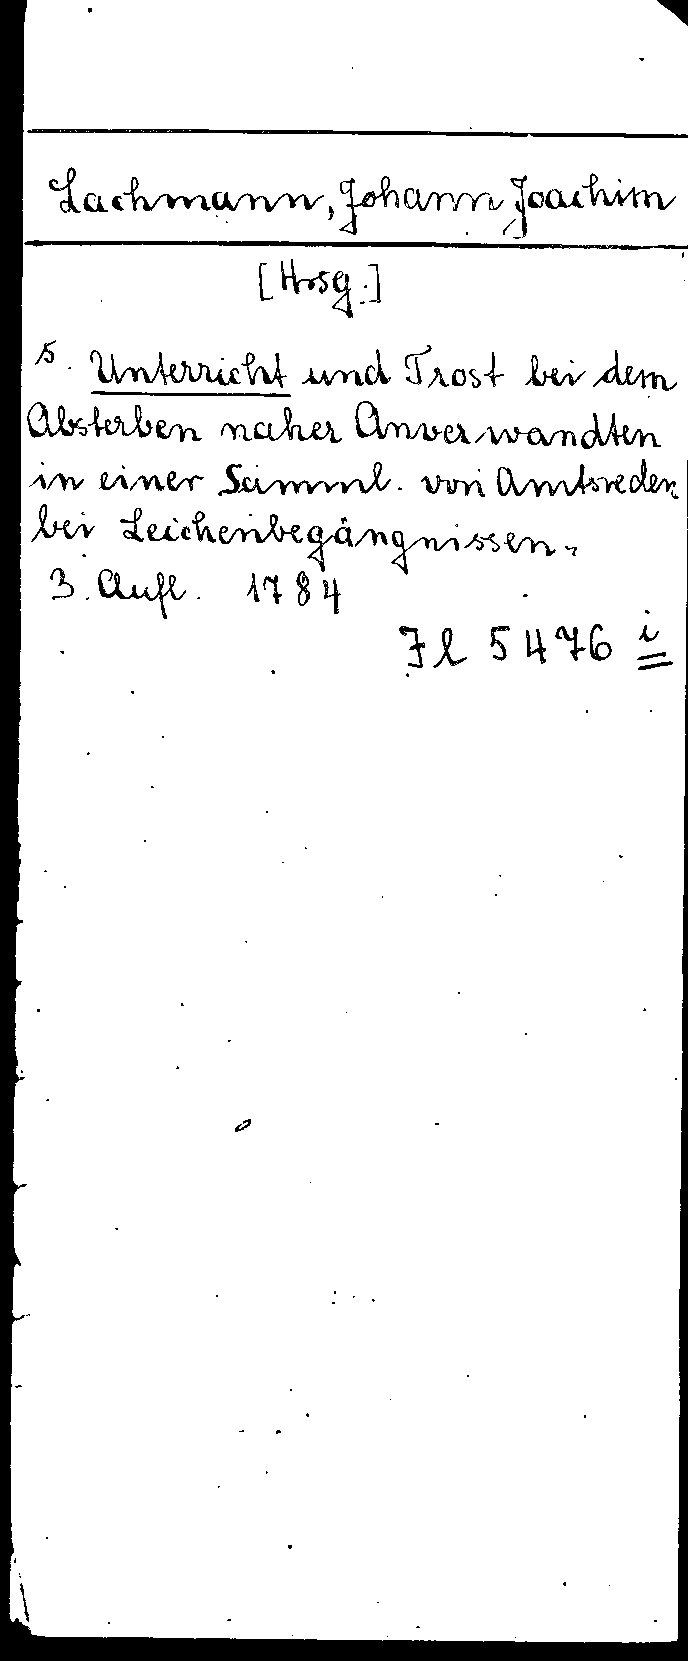 Lachmann, Johann Joachim
[Hrsg.]
s. Unterricht und Trost bei dem
Absterben naher Anverwandten
in einer Samml. von Amtsreden
bei Leichenbegängnissen.
3. Aufl. 1784
Jl 5476 i